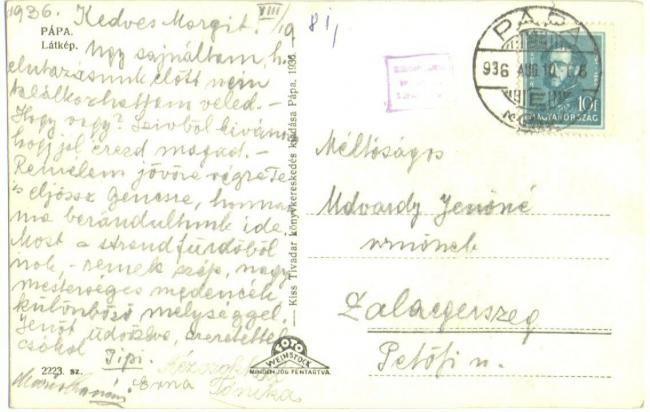 1936.
VIII/19
PÁPA.
Látkép.
Kedves Margit.
Ugy sajnáltam, h.
elutazásunk előtt nem
találkozhattam veled. –
Hogy vagy? Szivből kivánom
hogy jól érezd magad. –
Remélem jövőre végre Te
is eljössz Gencsre, honnan
ma berándultunk ide
Most a strandfürdőből
irok, – remek szép, nagy
mesterséges medencék,
különböző mélységgel.
Jenőt üdvözölve, szeretettel
csókol
Pipi.
Kézcsók
Erna
Tónika
2223. sz.
Kiss Tivadar könyvkereskedés kiadása Pápa. 1936.
FOTO
WEINSTOCK
MINDEN JOG FENTARTVA.
81,
PÁPA
936 AUG. 10
10f
MAGYARORSZÁG
Méltóságos
Udvardy Jenőné
urnőnek
Zalaegerszeg
Petőfi u.